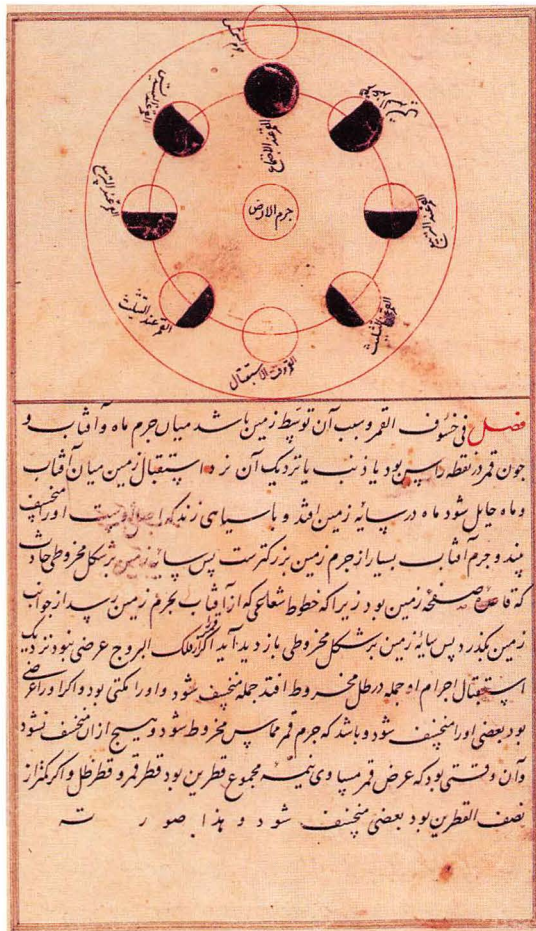 جرم الشمس
القمر عند الاجتماع
القمر عند التسدیس
القمر عند التربیع
القمر عند التربیع
جرم الارض
القمر عند التثلیث
القمر عند التثلیث
القمر وقت الاستقبال
فصل فی خسوف القمر و سبب آن توسط زمین باشد میان جرم ماه و آفتاب و
جون قمر در نقطه راس بود یا ذنب یا نزدیک آن نزد استقبال زمین میان آفتاب
و ماه حایل شود ماه در سایه زمین افتد و با سیاهی زند که اصل اوست او را منخسف
بیند و جرم آفتاب بسیار از جرم زمین بزرکترست پس سایه زمین بر شکل مخروطی حادث
که قاعده صفحه زمین بود زیرا که خطوط شعاعی که از آفتاب بجرم زمین رسد از جوانب
زمین بکذرد پس سایه زمین بر شکل مخروطی بازدید آید اکر قمر را از فلک البروج عرضی نبود نزدیک
استقبال اجرام او جمله در ظل مخروط افتد جمله منخسف شود و او را مکثی بود و اکر او را عرضی
بود بعضی او را منخسف شود و باشد که جرم قمر مماس مخروط شود و هیچ از ان منخسف نشود
و آن وقتی بود که عرض قمر مساوی نیمه مجموع قطرین بود قطر قمر و قطر ظل و اکر کمتر از
نصف القطرین بود بعضی منخسف شود و هذا صورته